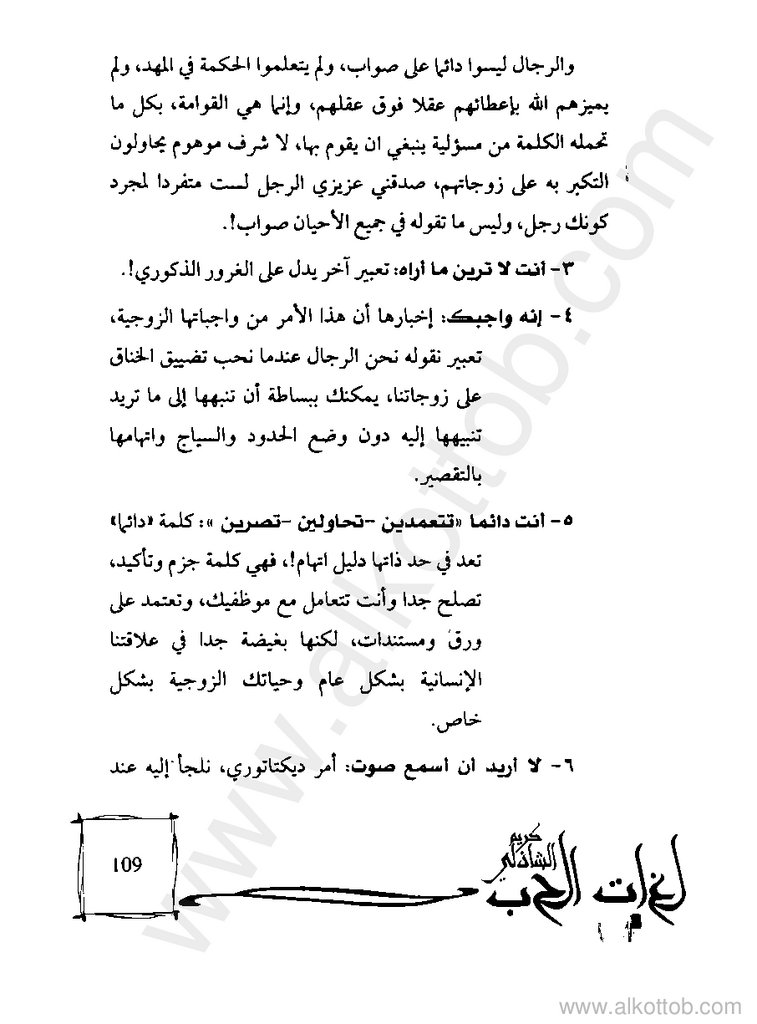 والرجال ليسوا دائما على صواب، ولم يتعلموا الحكمة في المهد، ولم
يميزهم الله بإعطائهم عقلا فوق عقلهم، وإنما هي القوامة، بكل ما
تحمله الكلمة من مسؤلية ينبغي ان يقوم بها، لا شرف موهوم يحاولون
التكبر به على زوجاتهم، صدقني عزيزي الرجل لست متفردا لمجرد
كونك رجل، وليس ما تقوله في جميع الأحيان صواب!.
٣- أنت لا ترين ما أراه: تعبير آخر يدل على الغرور الذكوري!.
٤- إنه واجبك: إخبارها أن هذا الأمر من واجباتها الزوجية،
تعبير نقوله نحن الرجال عندما نحب تضييق الخناق
على زوجاتنا، يمكنك ببساطة أن تنبهها إلى ما تريد
تنبيهها إليه دون وضع الحدود والسياج واتهامها
بالتقصير.
٥- أنت دائما «تتعمدين -تحاولين -تصرين »: كلمة «دائما»
تعد في حد ذاتها دليل اتهام!، فهي كلمة جزم وتأكيد،
تصلح جدا وأنت تتعامل مع موظفيك، وتعتمد على
ورق ومستندات، لكنها بغيضة جدا في علاقتنا
الإنسانية بشكل عام وحياتك الزوجية بشكل
خاص.
٦- لا أريد أن أسمع صوت: أمر ديكتاتوري، نلجأ إليه عند
كريم
الشاذلي
لغات الحب
109
www.alkottob.com
www.alkottob.com